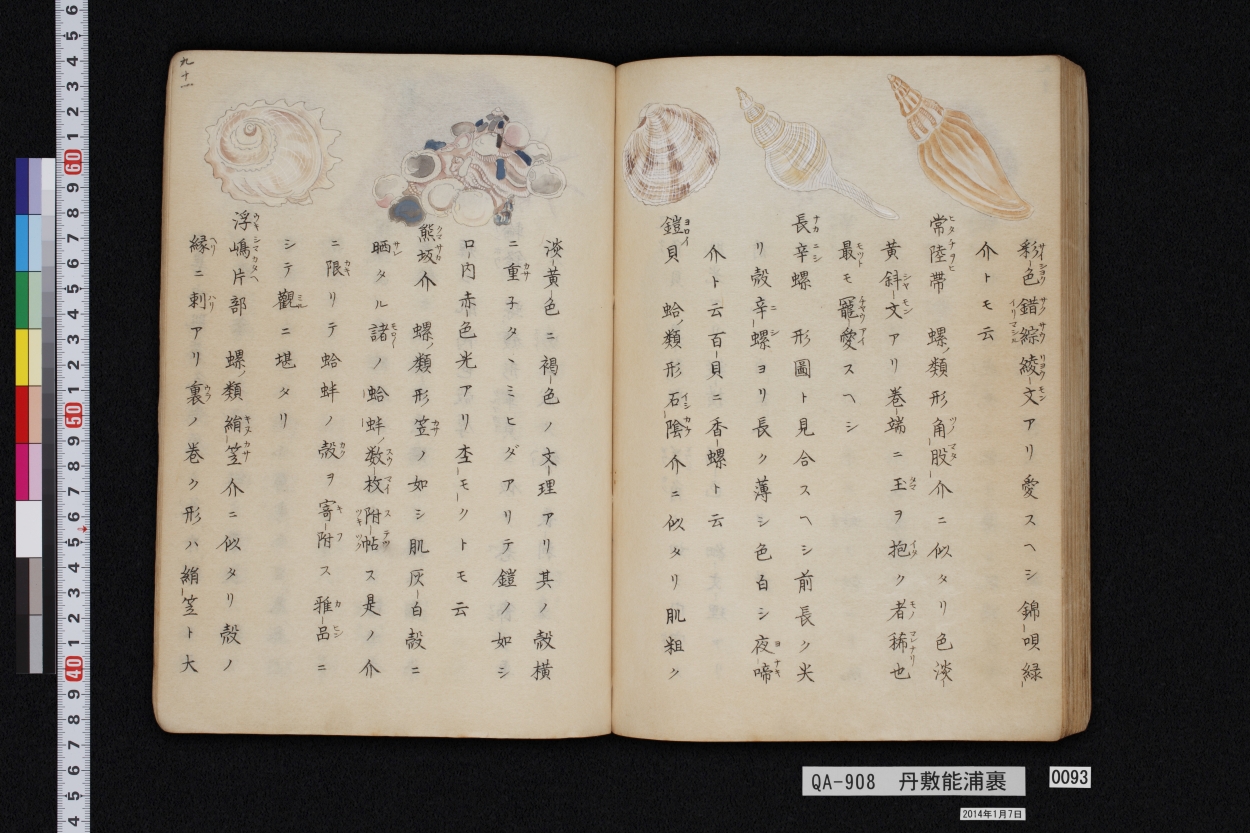 彩色錯綜綾文アリ愛スヘシ錦唄緑
介トモ云
常陸帯 螺ノ類形角股介ニ似タリ色淡
黄斜文アリ巻端ニ玉ヲ抱ク者稀也
最モ寵愛スヘシ
長辛螺 形圖ト見合スヘシ前長ク尖
リ殻辛螺ヨリ長ク薄シ色白シ夜啼
介ト云百貝ニ香螺ト云
鎧貝 蛤ノ類形石陰介ニ似タリ肌粗ク
淡黄色ニ褐色ノ文理アリ其ノ殻横
ニ重子タヽミヒダアリテ鎧ノ如シ
ロ内赤色光アリ杢モクトモ云
熊坂介 螺ノ類形笠ノ如シ肌灰白殻ニ
晒タル諸ノ蛤蚌ノ数枚附帖ス是ノ介
ニ限リテ蛤蚌ノ殻ヲ寄附ス雅品ニ
シテ觀ニ堪タリ
浮嶋片部 螺ノ類絹笠介ニ似タリ殻ノ
縁ニ刺アリ裏ノ巻ク形ハ絹笠ト大
九十一
QA-908 丹敷能浦裹
0093
2014年1月7日